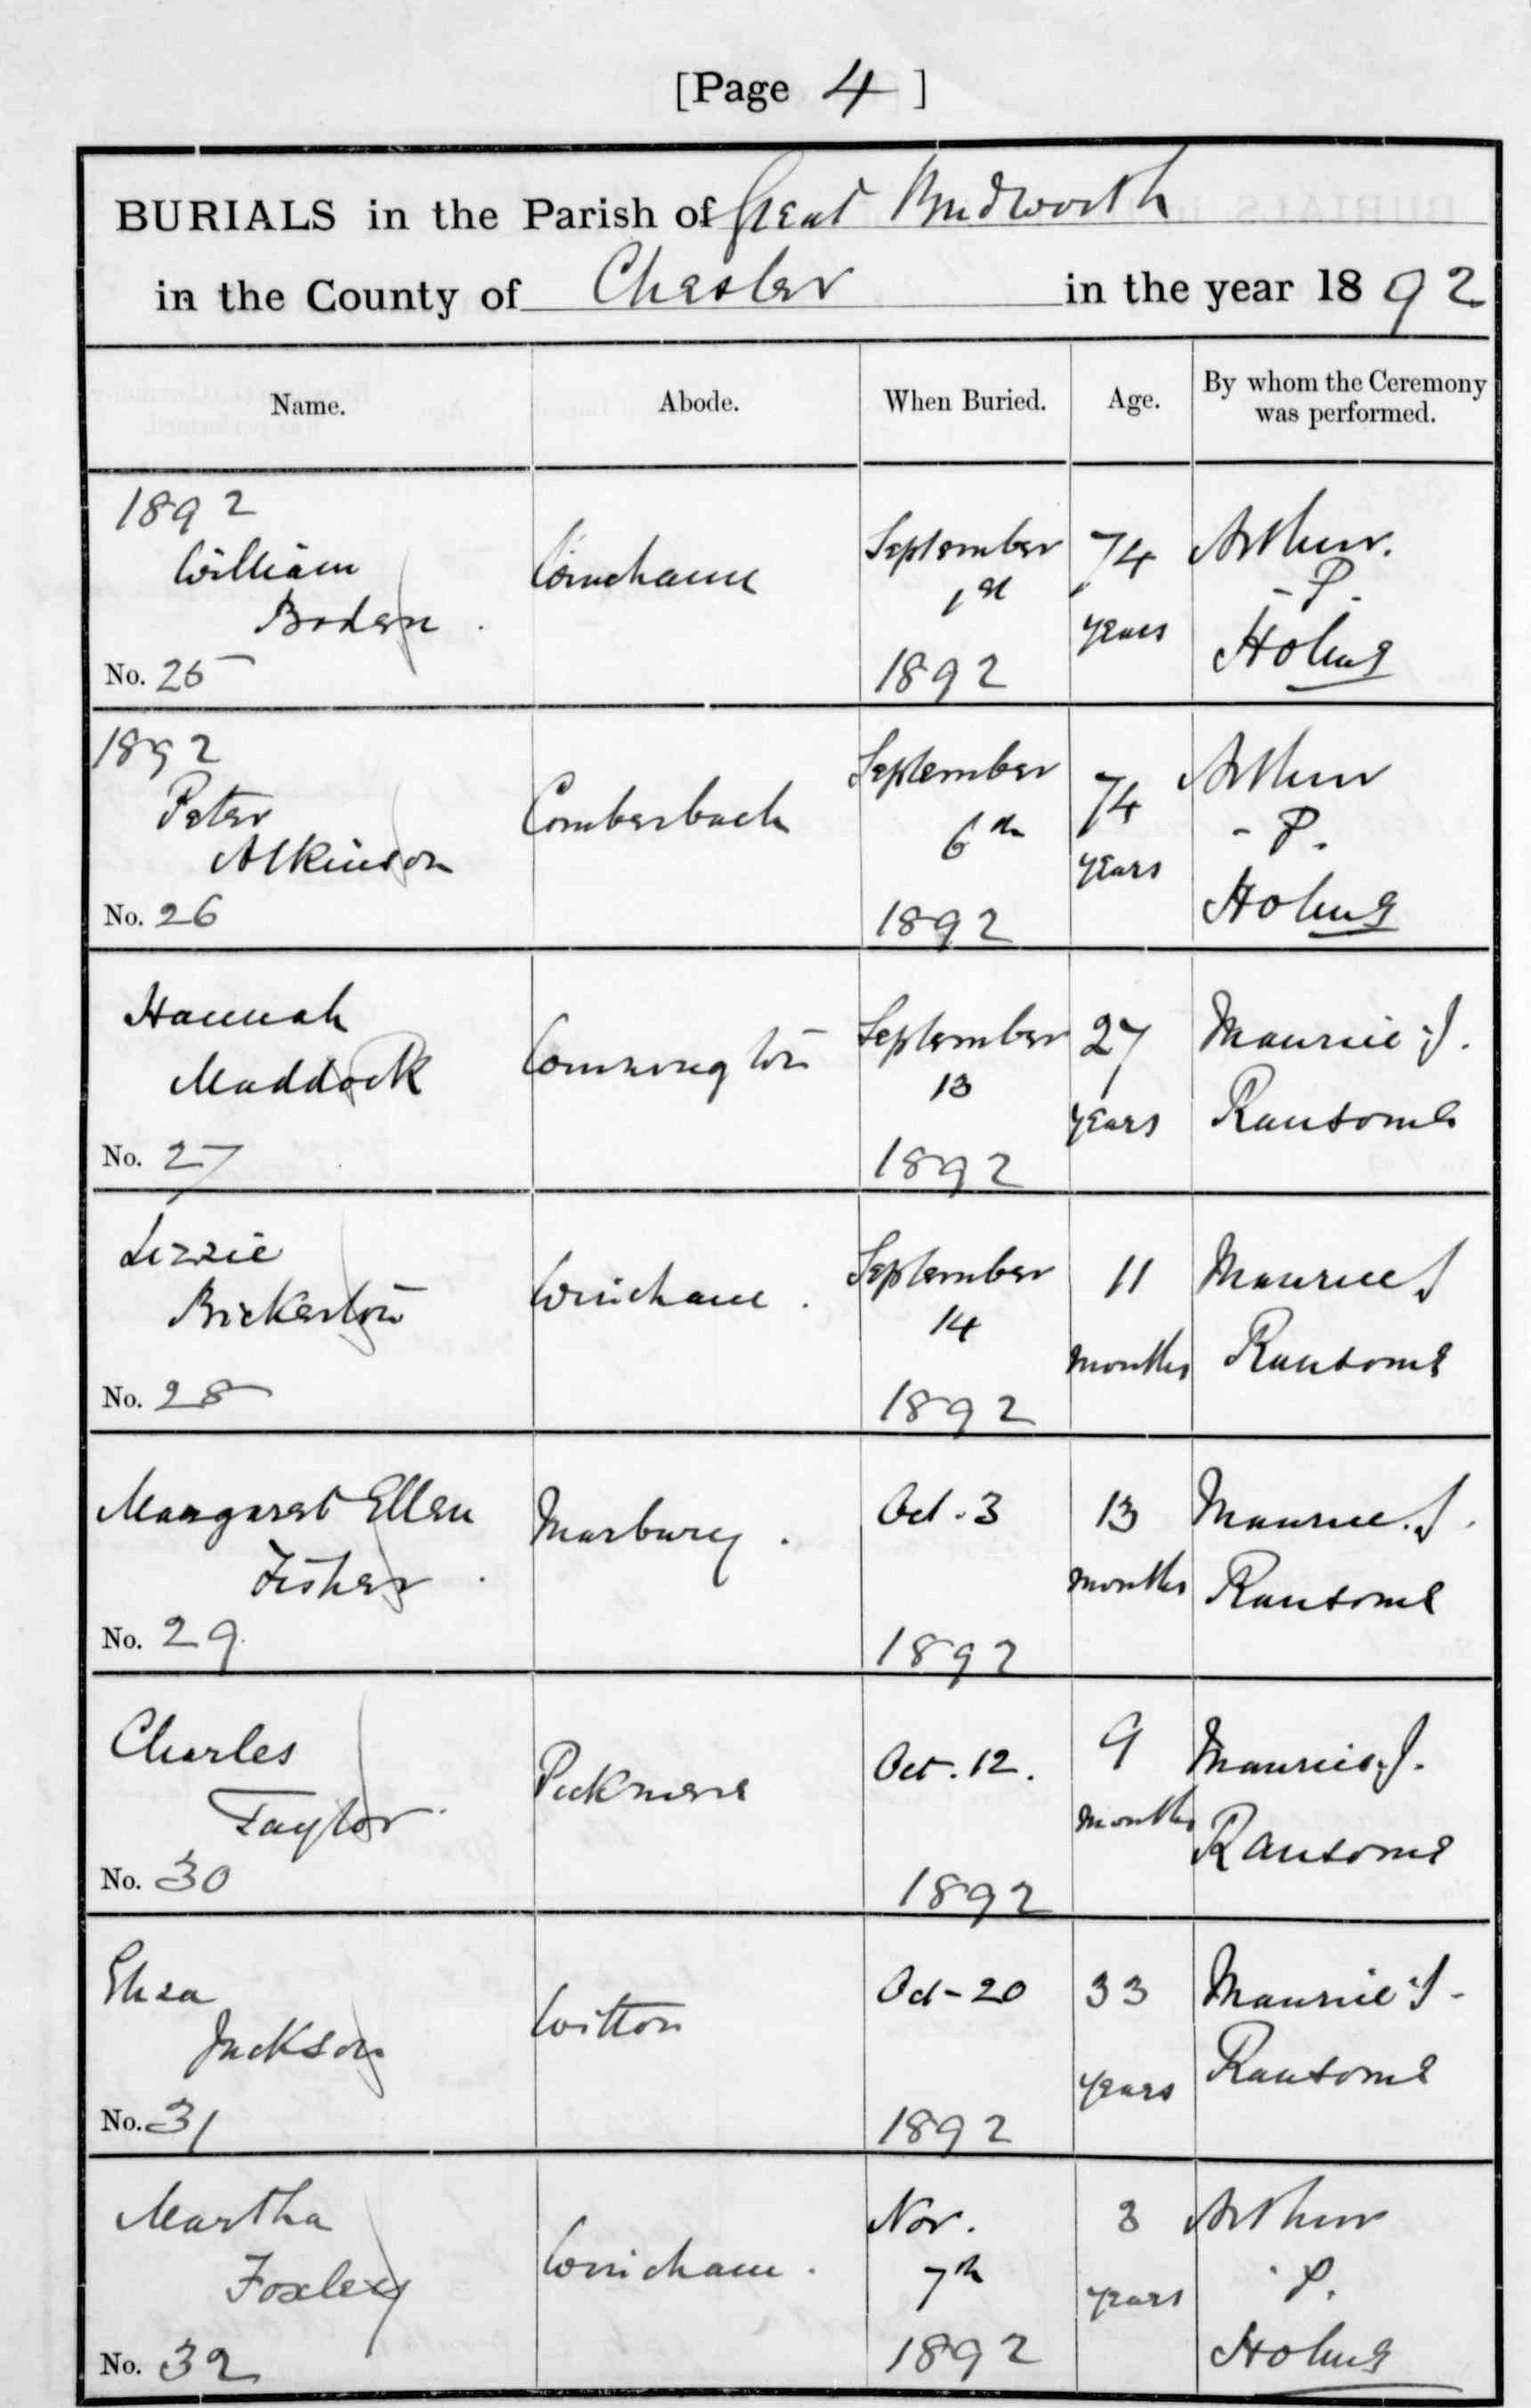 [Page 4]
BURIALS in the Parish of Great Budworth
in the County of Chester in the year 1892
Name. Abode. When Buried. Age. By whom the Ceremony was performed.
1892
William
Boden.
No. 25
Wincham
September
1st
1892
74
years
Arthur.
- P.
Holme
1892
Peter
Atkinson
No. 26
Comberbach
September
6th
1892
74
years
Arthur
- P.
Holme
Hannah
Maddock
No. 27
September
13
1892
27
years
Maurice J.
Ransome
Lizzie
Bickerton
No. 28
Wincham.
September
14
1892
11
months
Maurice J
Ransome
Margaret Ellen
Fisher.
No. 29.
Marbury.
Oct. 3
1892
13
months
Maurice. J.
Ransome
Charles
Taylor.
No. 30
Pickmere
Oct. 12.
1892
9
months
Maurice. J.
Ransome
Eliza
Jackson
No. 31
Witton
Oct - 20
1892
33
years
Maurice J -
Ransome
Martha
Foxley
No. 32
Wincham.
Nov.
7th
1892
years
Arthur
P.
Holme